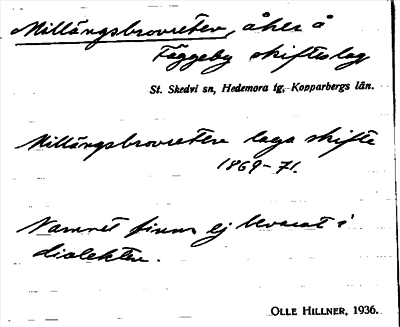 Millängsbrovreten, åker å
Fäggeby skifteslag
St. Skedvi sn, Hedemora tg, Kopparbergs län.
Millängsbrovreten laga skifte
1869-71.
Namnet finns ej bevarat i
dialekten.
OLLE HILLNER, 1936.